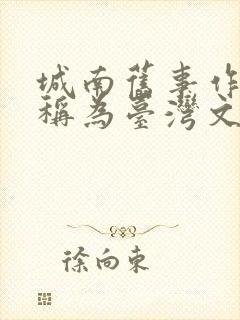 城南舊事作
稱為臺灣文
徐向東